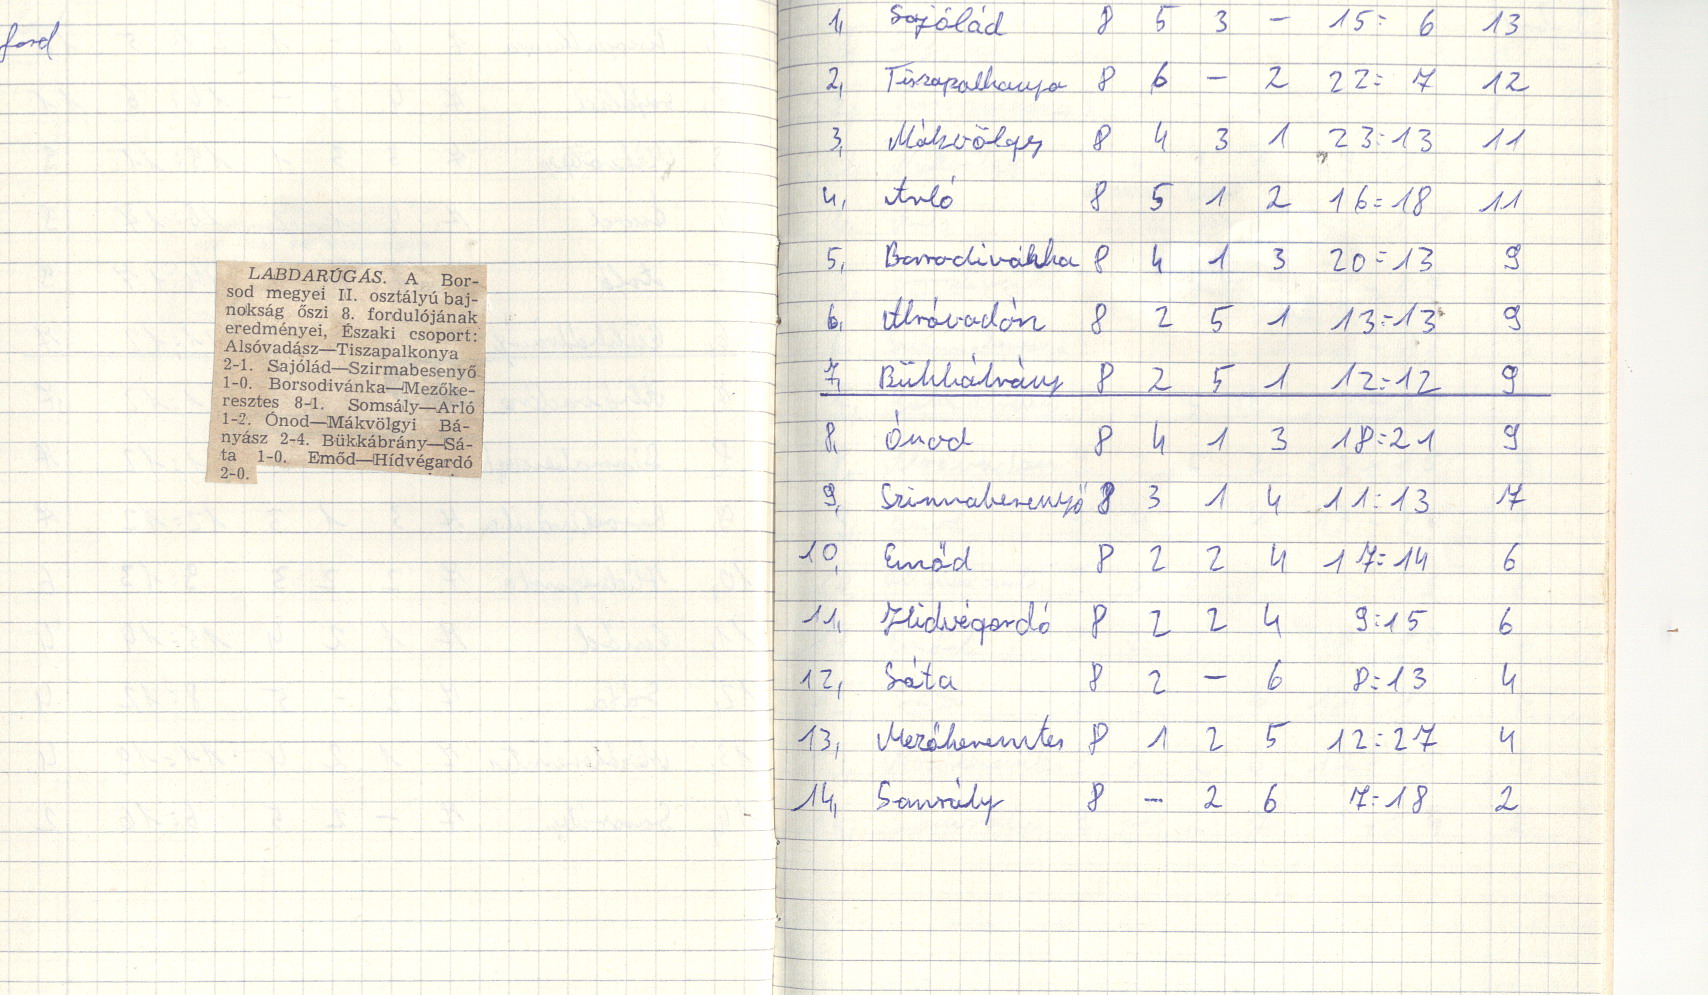 ford
LABDARÚGÁS. A Bor-
sod megyei II. osztályú baj-
nokság őszi 8. fordulójának
eredményei, Északi csoport:
Alsóvadász—Tiszapalkonya
2-1. Sajólád—Szirmabesenyő
1-0. Borsodivánka—Mezőke-
resztes 8-1. Somsály—Arló
1-2. Ónod—Mákvölgyi Bá-
nyász 2-4. Bükkábrány—Sá-
ta 1-0. Emőd—Hídvégardó
2-0.
1, Sajólád 8 5 3 - 15: 6 13
2, Tiszapalkonya 8 6 - 2 22: 7 12
3, Mákvölgy 8 4 3 1 23:13 11
4, Arló 8 5 1 2 16:18 11
5, Borsodivánka 8 4 1 3 20:13 9
6, Alsóvadász 8 2 5 1 13:13 9
7, Bükkábrány 8 2 5 1 12:12 9
8, Ónod 8 4 1 3 18:21 9
9, Szirmabesenyő 8 3 1 4 11:13 7
10, Emőd 8 2 2 4 17:14 6
11, Hidvégardó 8 2 2 4 9:15 6
12, Sáta 8 2 - 6 8:13 4
13, Mezőkeresztes 8 1 2 5 12:27 4
14, Somsály 8 - 2 6 7:18 2